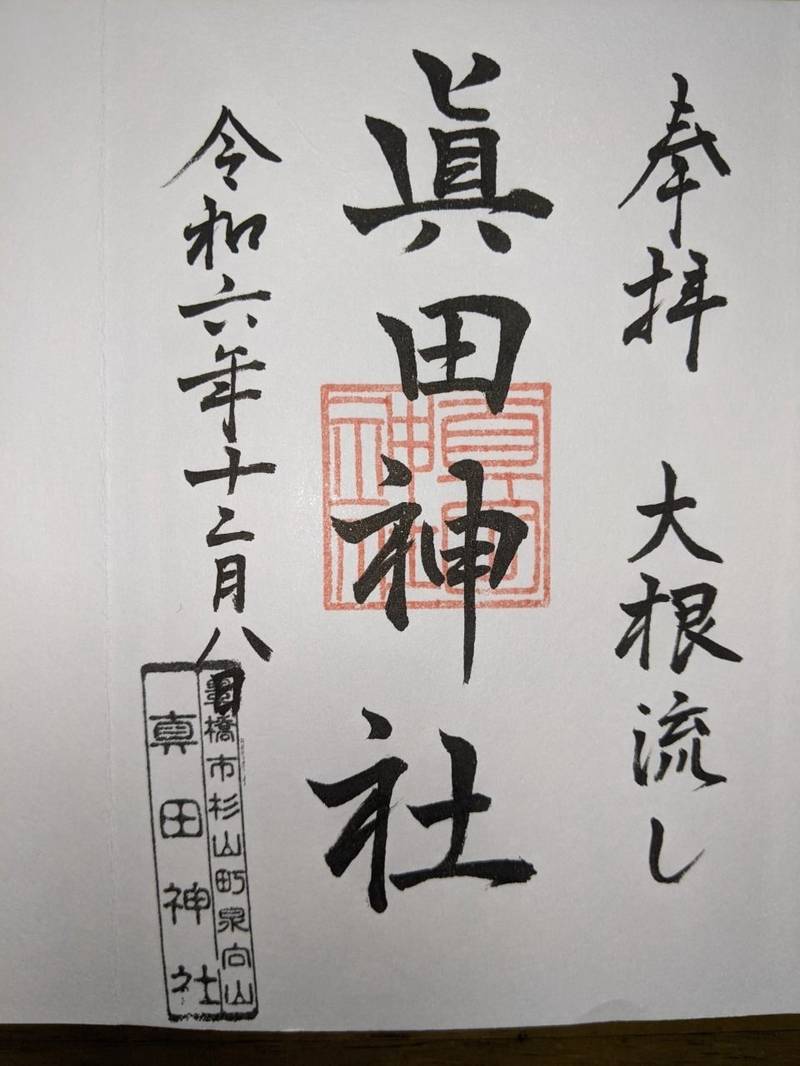 奉拝 大根流し
眞田神社
令和六年十二月八日
豊橋市杉山町泉向山
真田神社